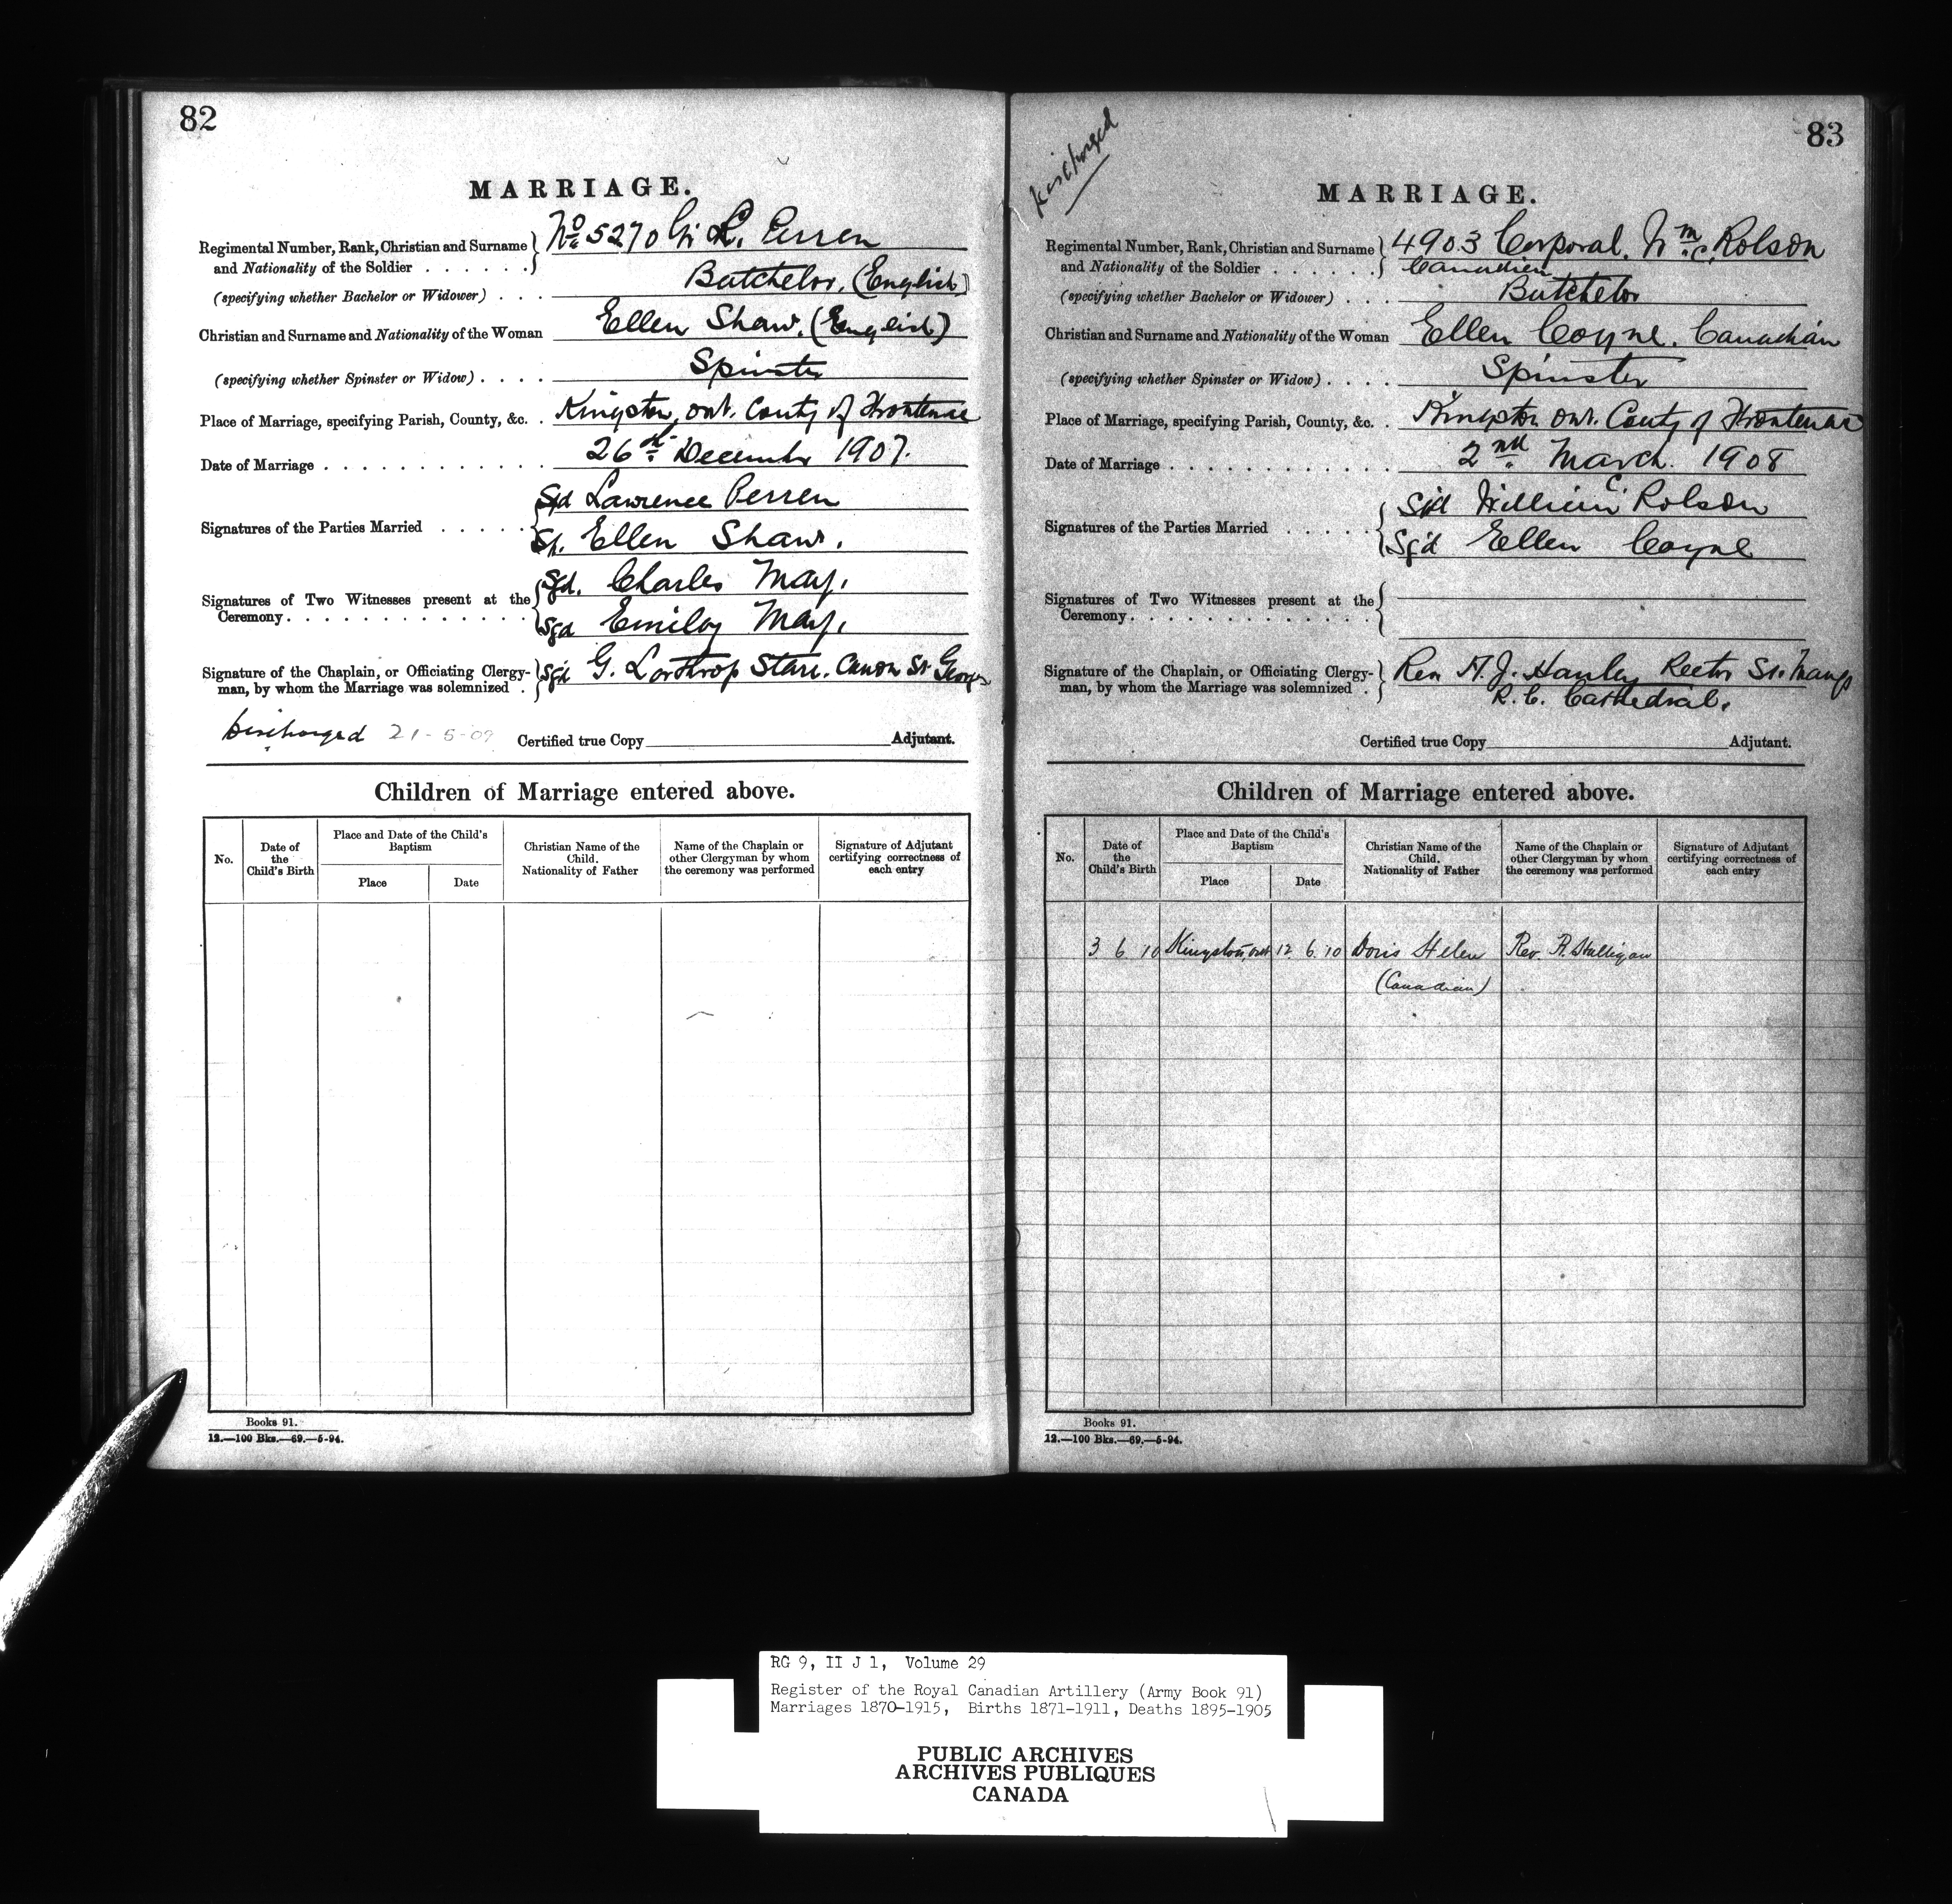 82
MARRIAGE.
Regimental Number, Rank, Christian and Surname and Nationality of the Soldier . . . . . . No. 5270 Gr. L. Perren
(specifying whether Bachelor or Widower) . . . Batchelor. (English)
Christian and Surname and Nationality of the Woman Ellen Shaw. (English)
(specifying whether Spinster or Widow) . . . . Spinster
Place of Marriage, specifying Parish, County, &c. . Kingston, Ont. County of Frontenac
Date of Marriage . . . . . . . . . . . . 26th December 1907.
Signatures of the Parties Married . . . . . Sgd Lawrence Perren
Sgd. Ellen Shaw.
Signatures of Two Witnesses present at the Ceremony. . . . . . . . . . . . . Sgd. Charles May.
Sgd Emiley May.
Signature of the Chaplain, or Officiating Clergyman, by whom the Marriage was solemnized . Sgd G. Lorthrop Starr. Canon St Georges
Discharged 21-5-09 Certified true Copy Adjutant.
Children of Marriage entered above.
No. Date of the Child's Birth Place and Date of the Child's Baptism Place Date Christian Name of the Child. Nationality of Father Name of the Chaplain or other Clergyman by whom the ceremony was performed Signature of Adjutant certifying correctness of each entry
Books 91.
12.—100 Bks.—69.—5-94.
83
Discharged
MARRIAGE.
Regimental Number, Rank, Christian and Surname and Nationality of the Soldier . . . . . . 4903 Corporal. Wm. C. Rolson
Canadien
(specifying whether Bachelor or Widower) . . . Batchelor
Christian and Surname and Nationality of the Woman Ellen Coyne. Canadian
(specifying whether Spinster or Widow) . . . . Spinster
Place of Marriage, specifying Parish, County, &c. . Kingston Ont. County of Frontenac
Date of Marriage . . . . . . . . . . . . 2nd March. 1908
Signatures of the Parties Married . . . . . Sgd William C. Rolson
Sgd Ellen Coyne
Signatures of Two Witnesses present at the Ceremony. . . . . . . . . . . . .
Signature of the Chaplain, or Officiating Clergyman, by whom the Marriage was solemnized . Rev. A. J. Hanley Rector St. Marys
R. C. Cathedral.
Certified true Copy Adjutant.
Children of Marriage entered above.
No. Date of the Child's Birth Place and Date of the Child's Baptism Place Date Christian Name of the Child. Nationality of Father Name of the Chaplain or other Clergyman by whom the ceremony was performed Signature of Adjutant certifying correctness of each entry
3 6 10 Kingston, Ont 12 6 10 Doris Helen Rev. A. Hulligan
(Canadian)
Books 91.
12.—100 Bks.—69.—5-94.
RG 9, II J 1, Volume 29
Register of the Royal Canadian Artillery (Army Book 91)
Marriages 1870-1915, Births 1871-1911, Deaths 1895-1905
PUBLIC ARCHIVES
ARCHIVES PUBLIQUES
CANADA